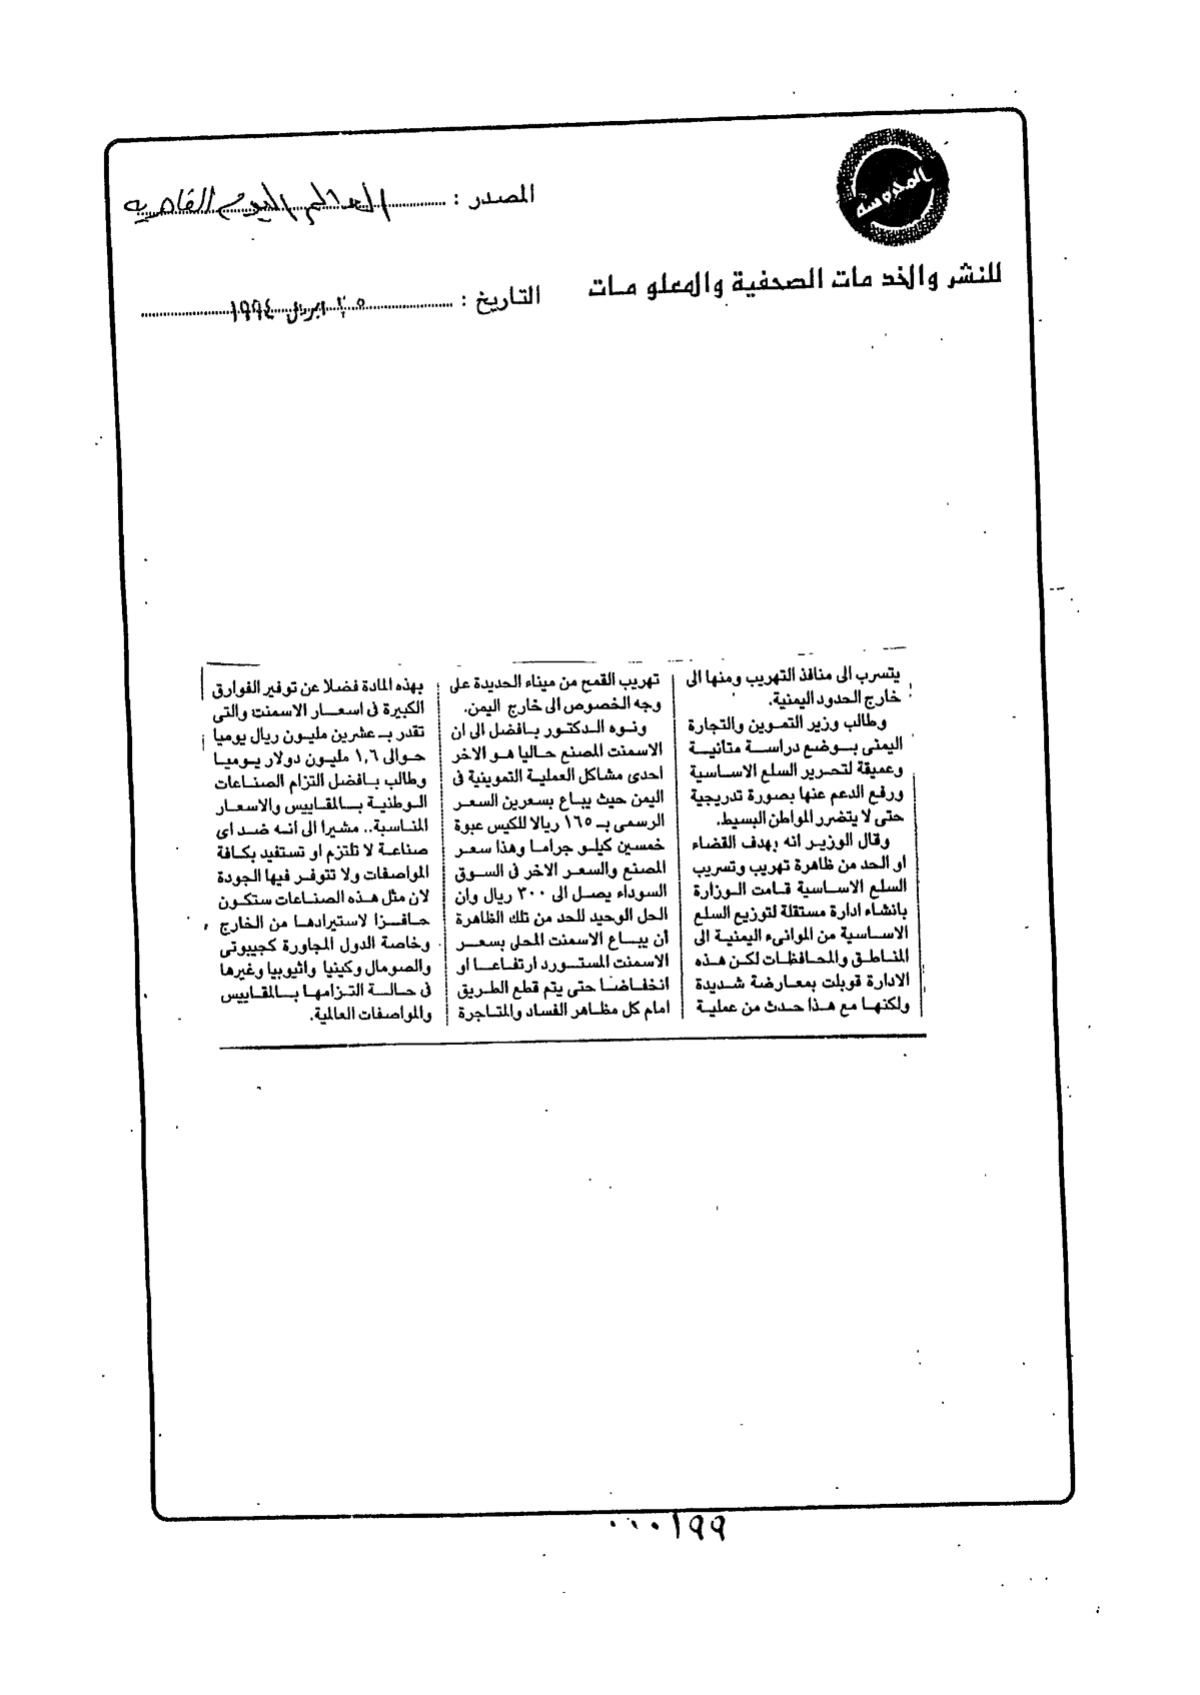 المحروسة
للنشر والخدمات الصحفية والمعلومات
المصدر : العالم اليوم القاهرية
التاريخ : ٢٥ ابريل ١٩٩٤
يتسرب الى منافذ التهريب ومنها الى
خارج الحدود اليمنية.
وطالب وزير التموين والتجارة
اليمنى بوضع دراسة متانية
وعميقة لتحرير السلع الاساسية
ورفع الدعم عنها بصورة تدريجية
حتى لا يتضرر المواطن البسيط.
وقال الوزير انه بهدف القضاء
او الحد من ظاهرة تهريب وتسريب
السلع الاساسية قامت الوزارة
بانشاء ادارة مستقلة لتوزيع السلع
الاساسية من الموانىء اليمنية الى
المناطق والمحافظات لكن هذه
الادارة قوبلت بمعارضة شديدة
ولكنها مع هذا حدث من عملية
تهريب القمح من ميناء الحديدة على
وجه الخصوص الى خارج اليمن.
ونوه الدكتور بافضل الى ان
الاسمنت المصنع حاليا هو الاخر
احدى مشاكل العملية التموينية فى
اليمن حيث يباع بسعرين السعر
الرسمى بـ ١٦٥ ريالا للكيس عبوة
خمسين كيلو جراما وهذا سعر
المصنع والسعر الاخر فى السوق
السوداء يصل الى ٣٠٠ ريال وأن
الحل الوحيد للحد من تلك الظاهرة
أن يباع الاسمنت المحلى بسعر
الاسمنت المستورد ارتفاعا او
انخفاضا حتى يتم قطع الطريق
امام كل مظاهر الفساد والمتاجرة
بهذه المادة فضلا عن توفير الفوارق
الكبيرة فى اسعار الاسمنت والتى
تقدر بـ عشرين مليون ريال يوميا
حوالى ١,٦ مليون دولار يوميا
وطالب بافضل التزام الصناعات
الوطنية بالمقاييس والاسعار
المناسبة.. مشيرا الى انه ضد اى
صناعة لا تلتزم او تستفيد بكافة
المواصفات ولا تتوفر فيها الجودة
لان مثل هذه الصناعات ستكون
حافزا لاستيرادها من الخارج
وخاصة الدول المجاورة كجيبوتى
والصومال وكينيا واثيوبيا وغيرها
فى حالة التزامها بالمقاييس
والمواصفات العالمية.
٠٠٠١٩٩